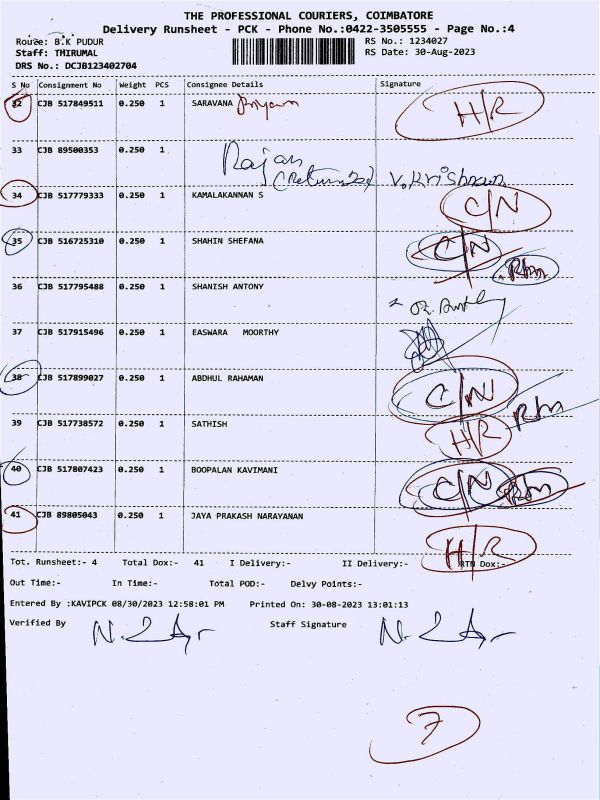 THE PROFESSIONAL COURIERS, COIMBATORE
Delivery Runsheet - PCK - Phone No.:0422-3505555 - Page No.:4
B.K PUDUR RS No.: 1234027
Staff: THIRUMAL RS Date: 30-Aug-2023
DRS No.: DCJB123402704
S No Consignment No Weight PCS Consignee Details Signature
32 CJB 517849511 0.250 1 SARAVANA H/R
33 CJB 89500353 0.250 1
Rajan
(Returned) V.Krishnan
34 CJB 517779333 0.250 1 KAMALAKANNAN S C/N
35 CJB 516725310 0.250 1 SHAHIN SHEFANA C/N Rtn
36 CJB 517795488 0.250 1 SHANISH ANTONY
37 CJB 517915496 0.250 1 EASWARA MOORTHY
38 CJB 517899027 0.250 1 ABDHUL RAHAMAN C/N Rtn
39 CJB 517738572 0.250 1 SATHISH H/R
40 CJB 517807423 0.250 1 BOOPALAN KAVIMANI C/N Rtn
41 CJB 89805043 0.250 1 JAYA PRAKASH NARAYANAN H/R
Tot. Runsheet:- 4 Total Dox:- 41 I Delivery:- II Delivery:- RTN Dox:-
Out Time:- In Time:- Total POD:- Delvy Points:-
Entered By :KAVIPCK 08/30/2023 12:58:01 PM Printed On: 30-08-2023 13:01:13
Verified By Staff Signature
7